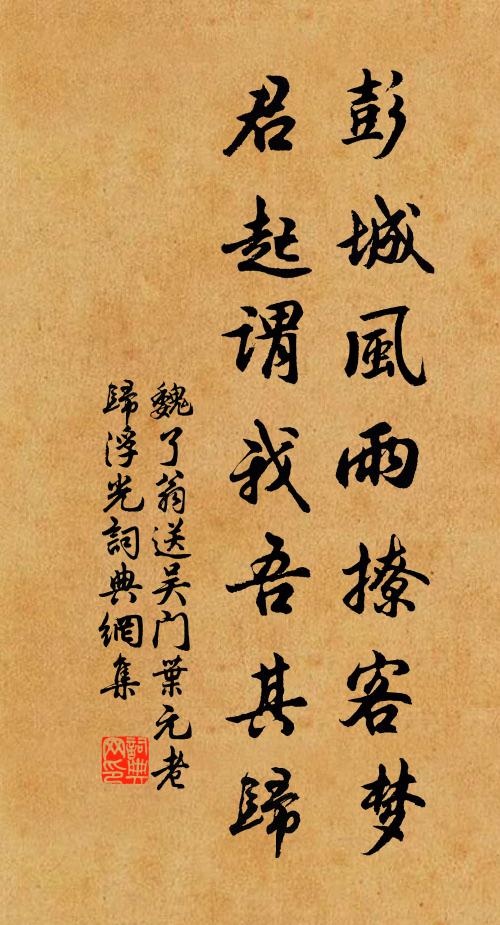 彭城風雨撩客梦
君起謂我吾其歸
魏了翁送吴门葉元老
歸浮光詞典網集
詞典网印